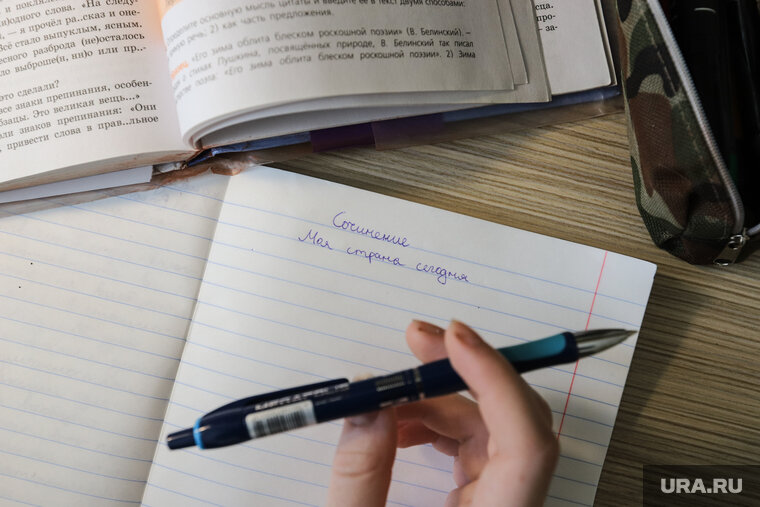 поклялся
людного слова. «На следу-
– я прочёл ра..сказ и оне-
Всё стало выпуклым, ясным.
ресного разброда (не)осталось
выброше(н, нн)о или пр..
это сделали?
все знаки препинания, особен-
абзацы. Это великая вещь...»
роли знаков препинания: «Они
привести слова в прав..льное
определите основную мысль цитаты и введите её в текст двумя способами:
речь; 2) как часть предложения.
«Его зима облита блеском роскошной поэзии» (В. Белинский). –
о стихах Пушкина, посвящённых природе, В. Белинский так писал
поэта: «Его зима облита блеском роскошной поэзии». 2) Зима
Сочинение
Моя страна сегодня
URA.RU